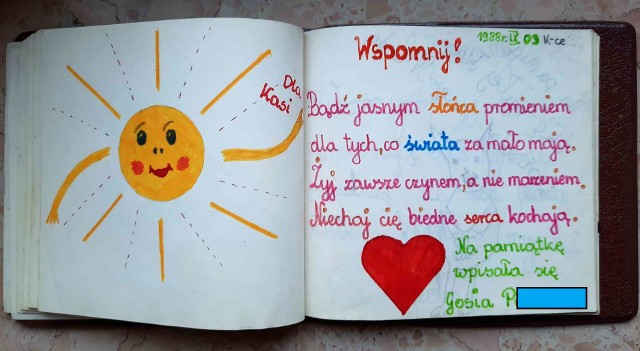 Dla
Kasi
Wspomnij!
1988r. IX 03 K-ce
Bądź jasnym słońca promieniem
dla tych, co świata za mało mają.
Żyj zawsze czynem, a nie marzeniem.
Niechaj cię biedne serca kochają.
Na pamiątkę
wpisała się
Gosia P